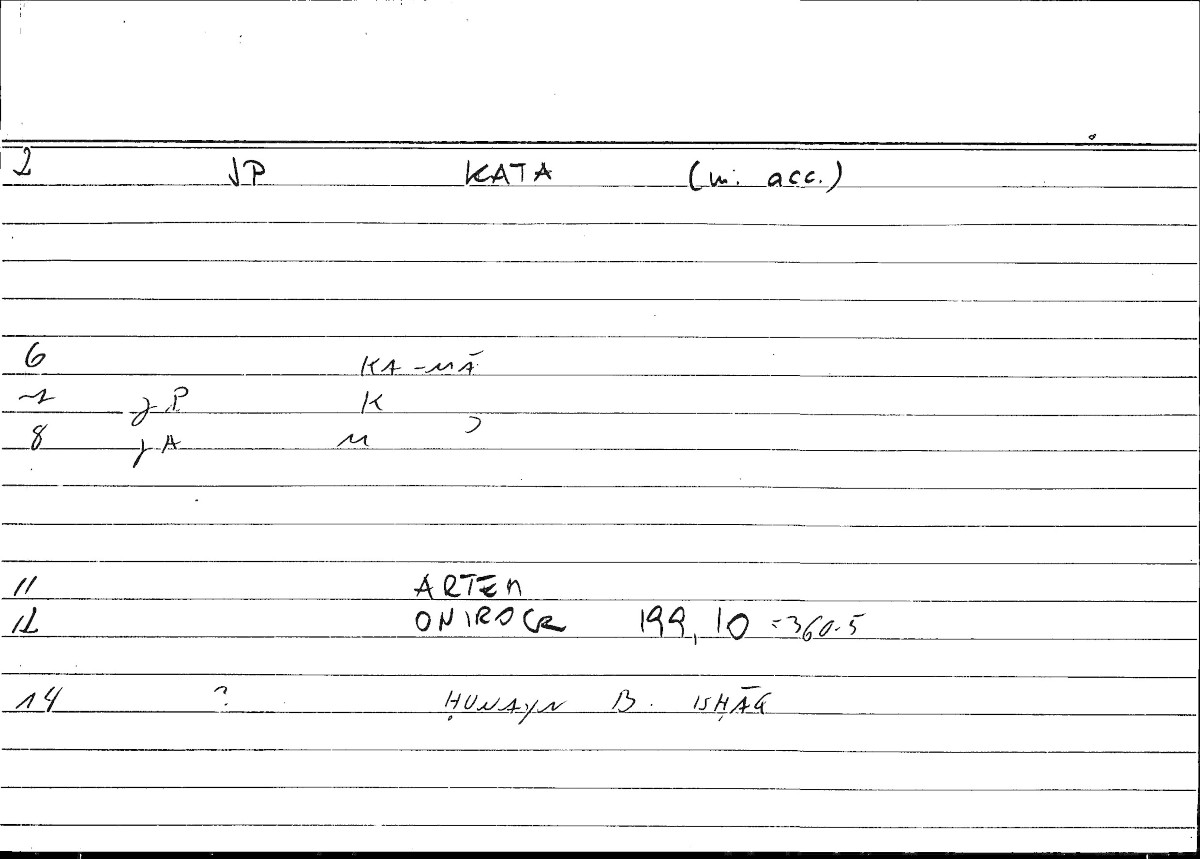 2 JP KATA (m. acc.)
6 KA-MĀ
7 jP K
8 jA M
11 ARTEM
12 ONIROCR 199,10 =360.5
14 ? ḤUNAYN B. ISḤĀQ